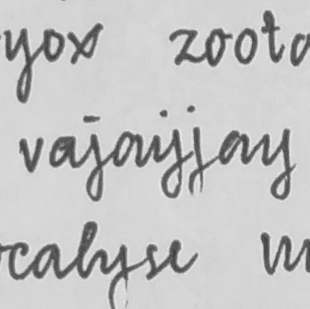 yox zoota
vajayjay
ocalyse